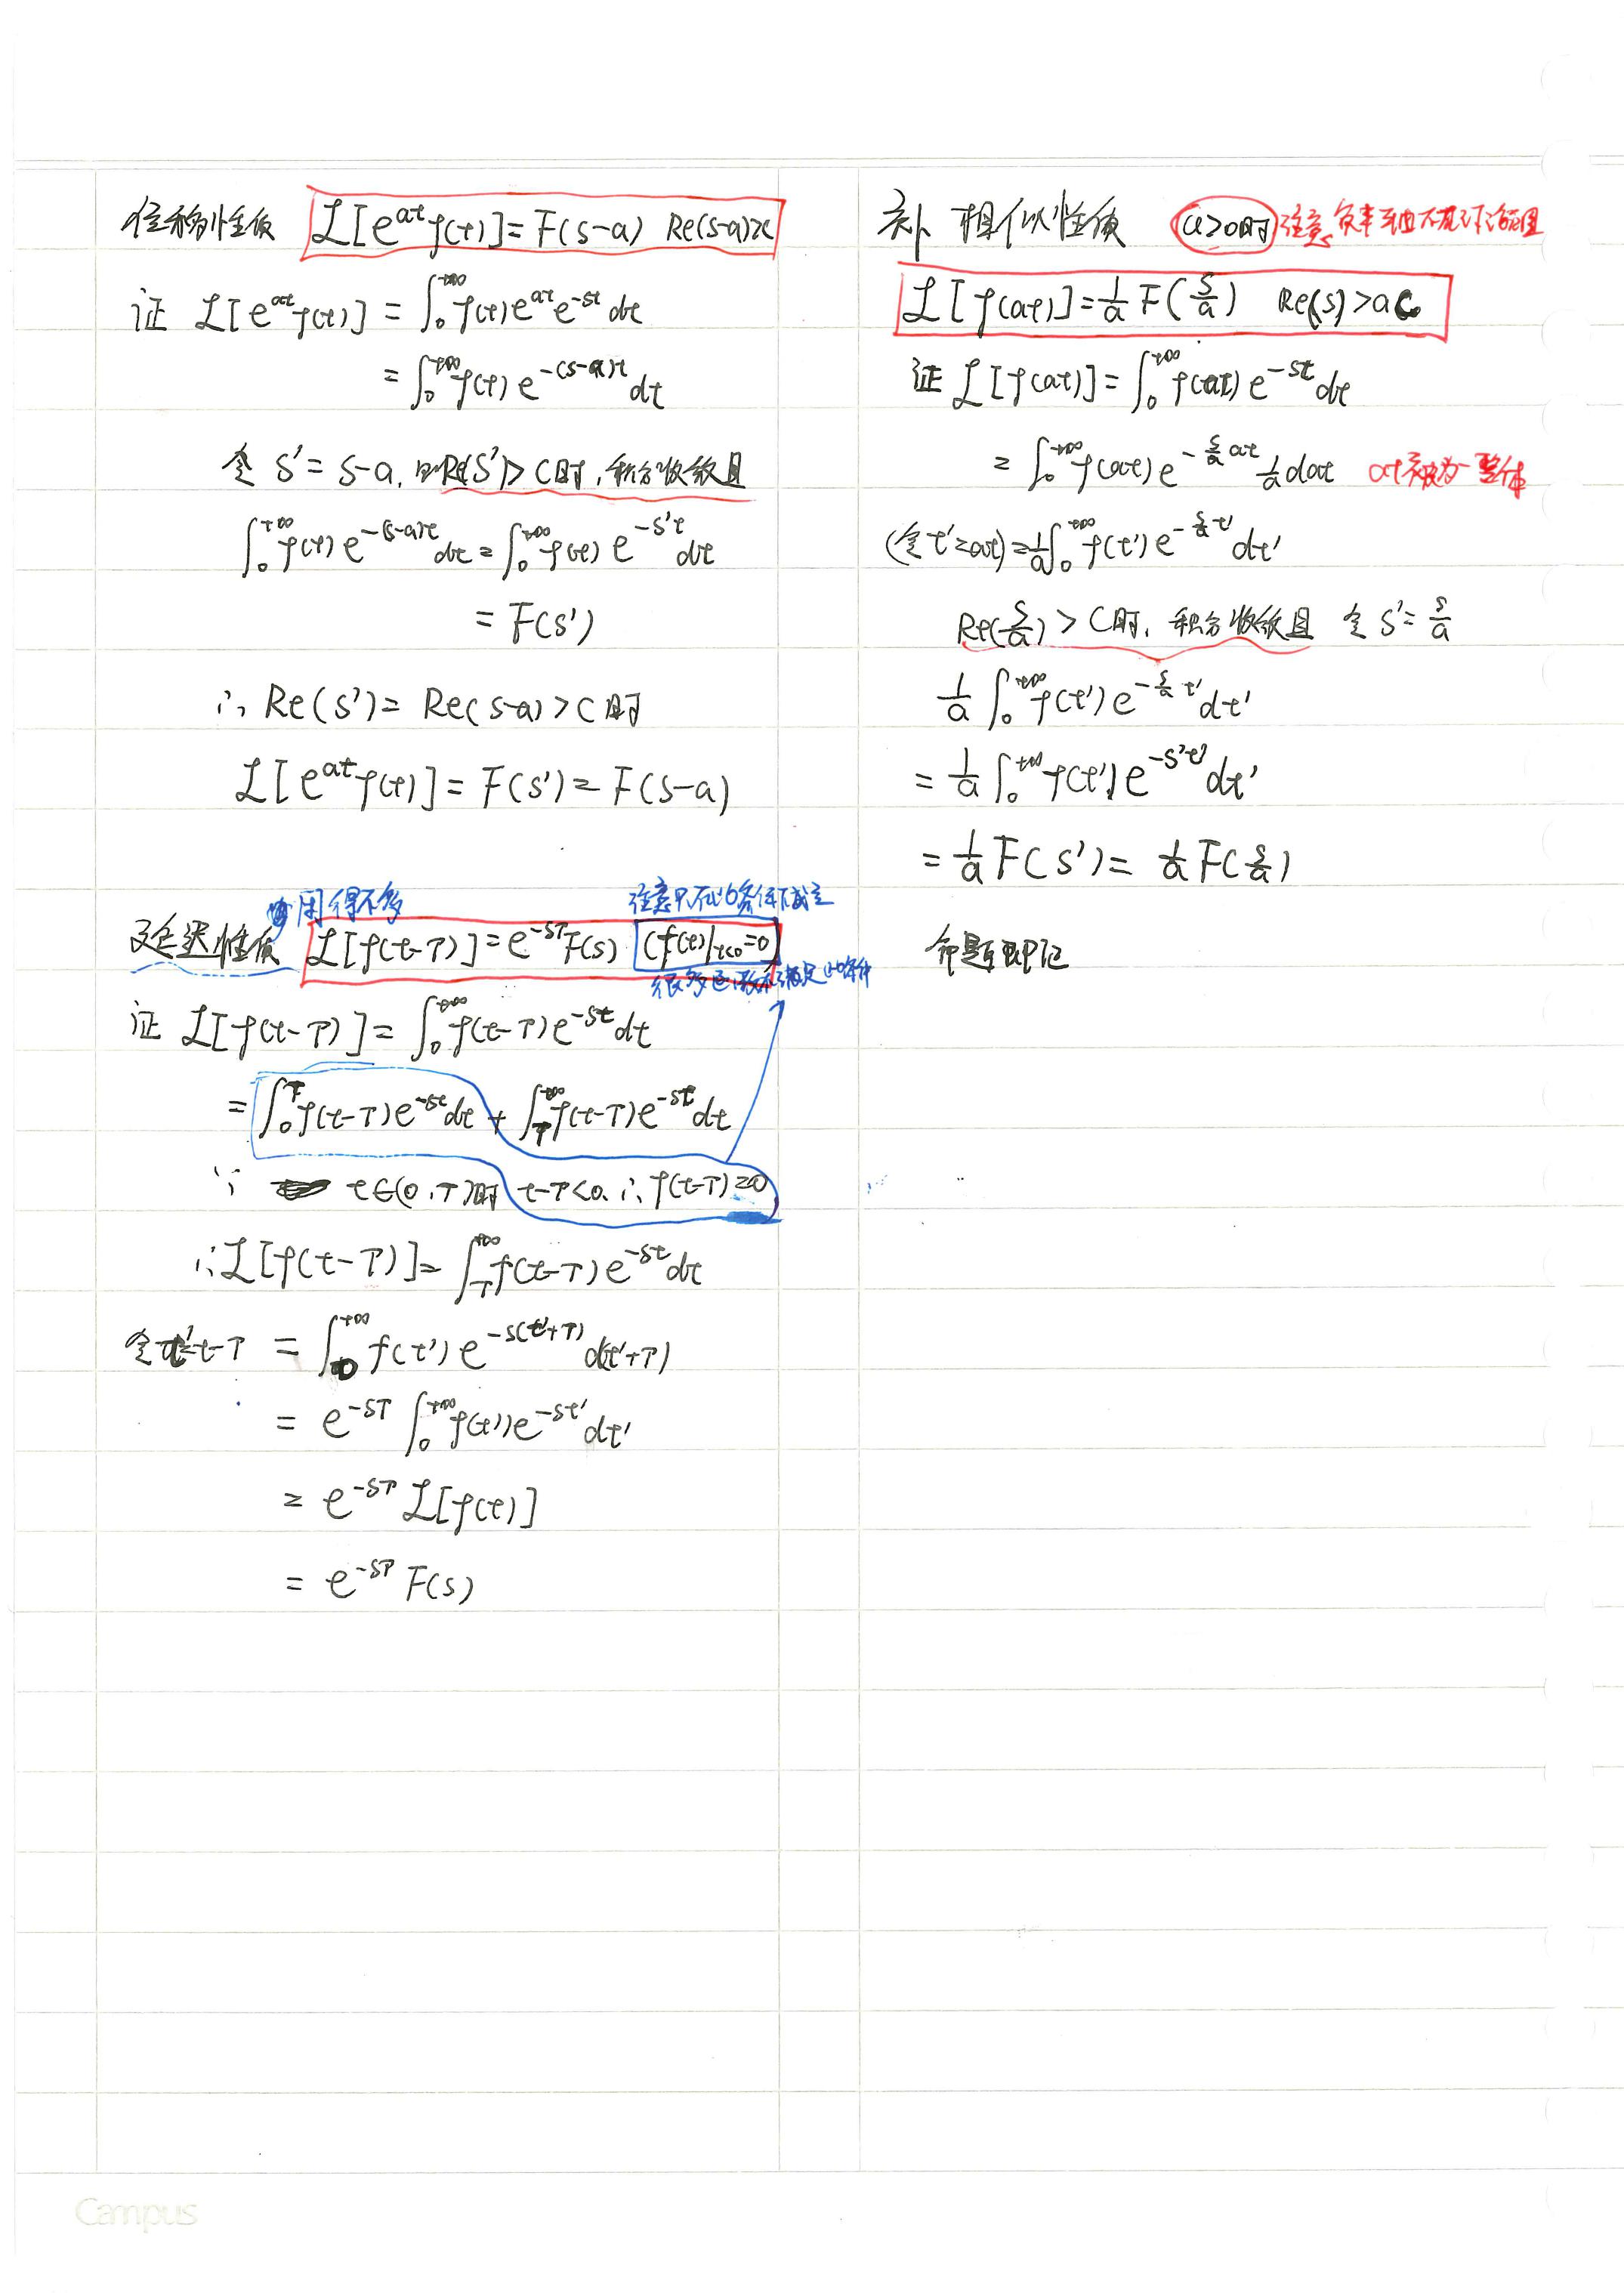 位移性质 ℒ[e^{at}f(t)]=F(s-a) Re(s-a)>c
证 ℒ[e^{at}f(t)] = ∫_0^{+∞} f(t)e^{at}e^{-st}dt
= ∫_0^{+∞} f(t)e^{-(s-a)t}dt
令 s'=s-a, 即Re(s')>c时,积分收敛且
∫_0^{+∞} f(t)e^{-(s-a)t}dt = ∫_0^{+∞} f(t)e^{-s't}dt
= F(s')
∴ Re(s')= Re(s-a)>c时
ℒ[e^{at}f(t)] = F(s') = F(s-a)
用得不多 注意只有此条件下成立
延迟性质 ℒ[f(t-T)]=e^{-sT}F(s) (f(t)|_{t<0}=0)
很多函数不满足此条件
证 ℒ[f(t-T)] = ∫_0^{+∞} f(t-T)e^{-st}dt
= ∫_0^T f(t-T)e^{-st}dt + ∫_T^{+∞} f(t-T)e^{-st}dt
∵ t∈(0,T)时 t-T<0. ∴ f(t-T)=0
∴ ℒ[f(t-T)] = ∫_T^{+∞} f(t-T)e^{-st}dt
令t'=t-T = ∫_0^{+∞} f(t')e^{-s(t'+T)}d(t'+T)
= e^{-sT} ∫_0^{+∞} f(t')e^{-st'}dt'
= e^{-sT} ℒ[f(t)]
= e^{-sT} F(s)
补 相似性质 a>0时 注意 负半轴不在讨论范围
ℒ[f(at)]=\frac{1}{a}F(\frac{s}{a}) Re(s)>ac
证 ℒ[f(at)] = ∫_0^{+∞} f(at)e^{-st}dt
= ∫_0^{+∞} f(at)e^{-\frac{s}{a}at}\frac{1}{a}dat at视为一整体
(令t'=at) = \frac{1}{a}∫_0^{+∞} f(t')e^{-\frac{s}{a}t'}dt'
Re(\frac{s}{a})>c时,积分收敛且 令s'=\frac{s}{a}
\frac{1}{a}∫_0^{+∞} f(t')e^{-\frac{s}{a}t'}dt'
= \frac{1}{a}∫_0^{+∞} f(t')e^{-s't'}dt'
= \frac{1}{a}F(s') = \frac{1}{a}F(\frac{s}{a})
命题即证
Campus